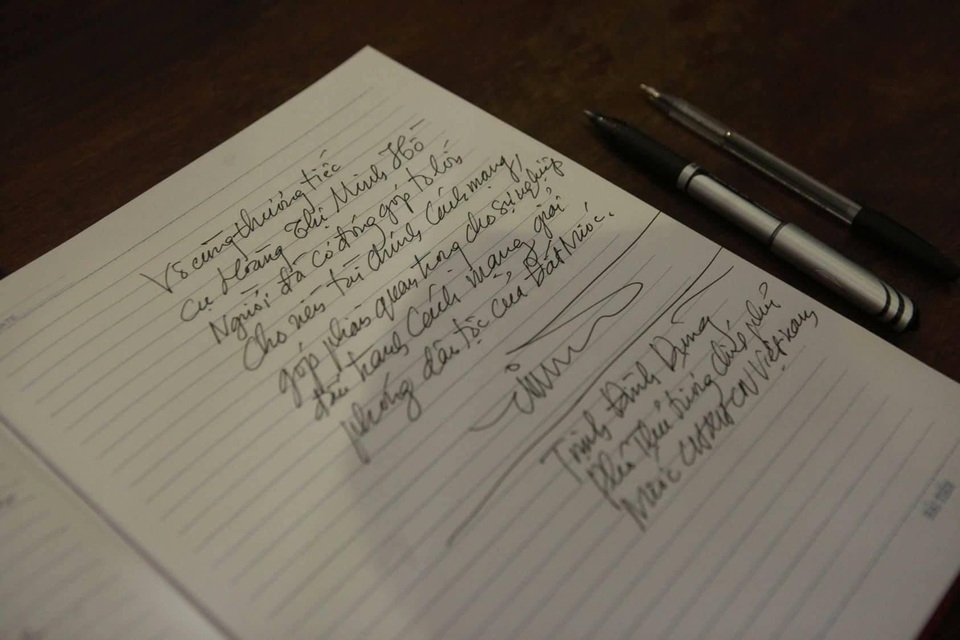 Vô cùng thương tiếc
cụ Hoàng Thị Minh Hồ
Người đã có đóng góp to lớn
cho nền tài chính Cách mạng,
góp phần quan trọng cho sự nghiệp
đấu tranh Cách mạng giải
phóng dân tộc của Đất Nước.
Trịnh Đình Dũng
Phó Thủ tướng chính phủ
Nước CHXHCN Việt nam